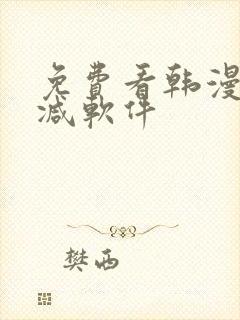 免費看韩漫
减軟件
樊西